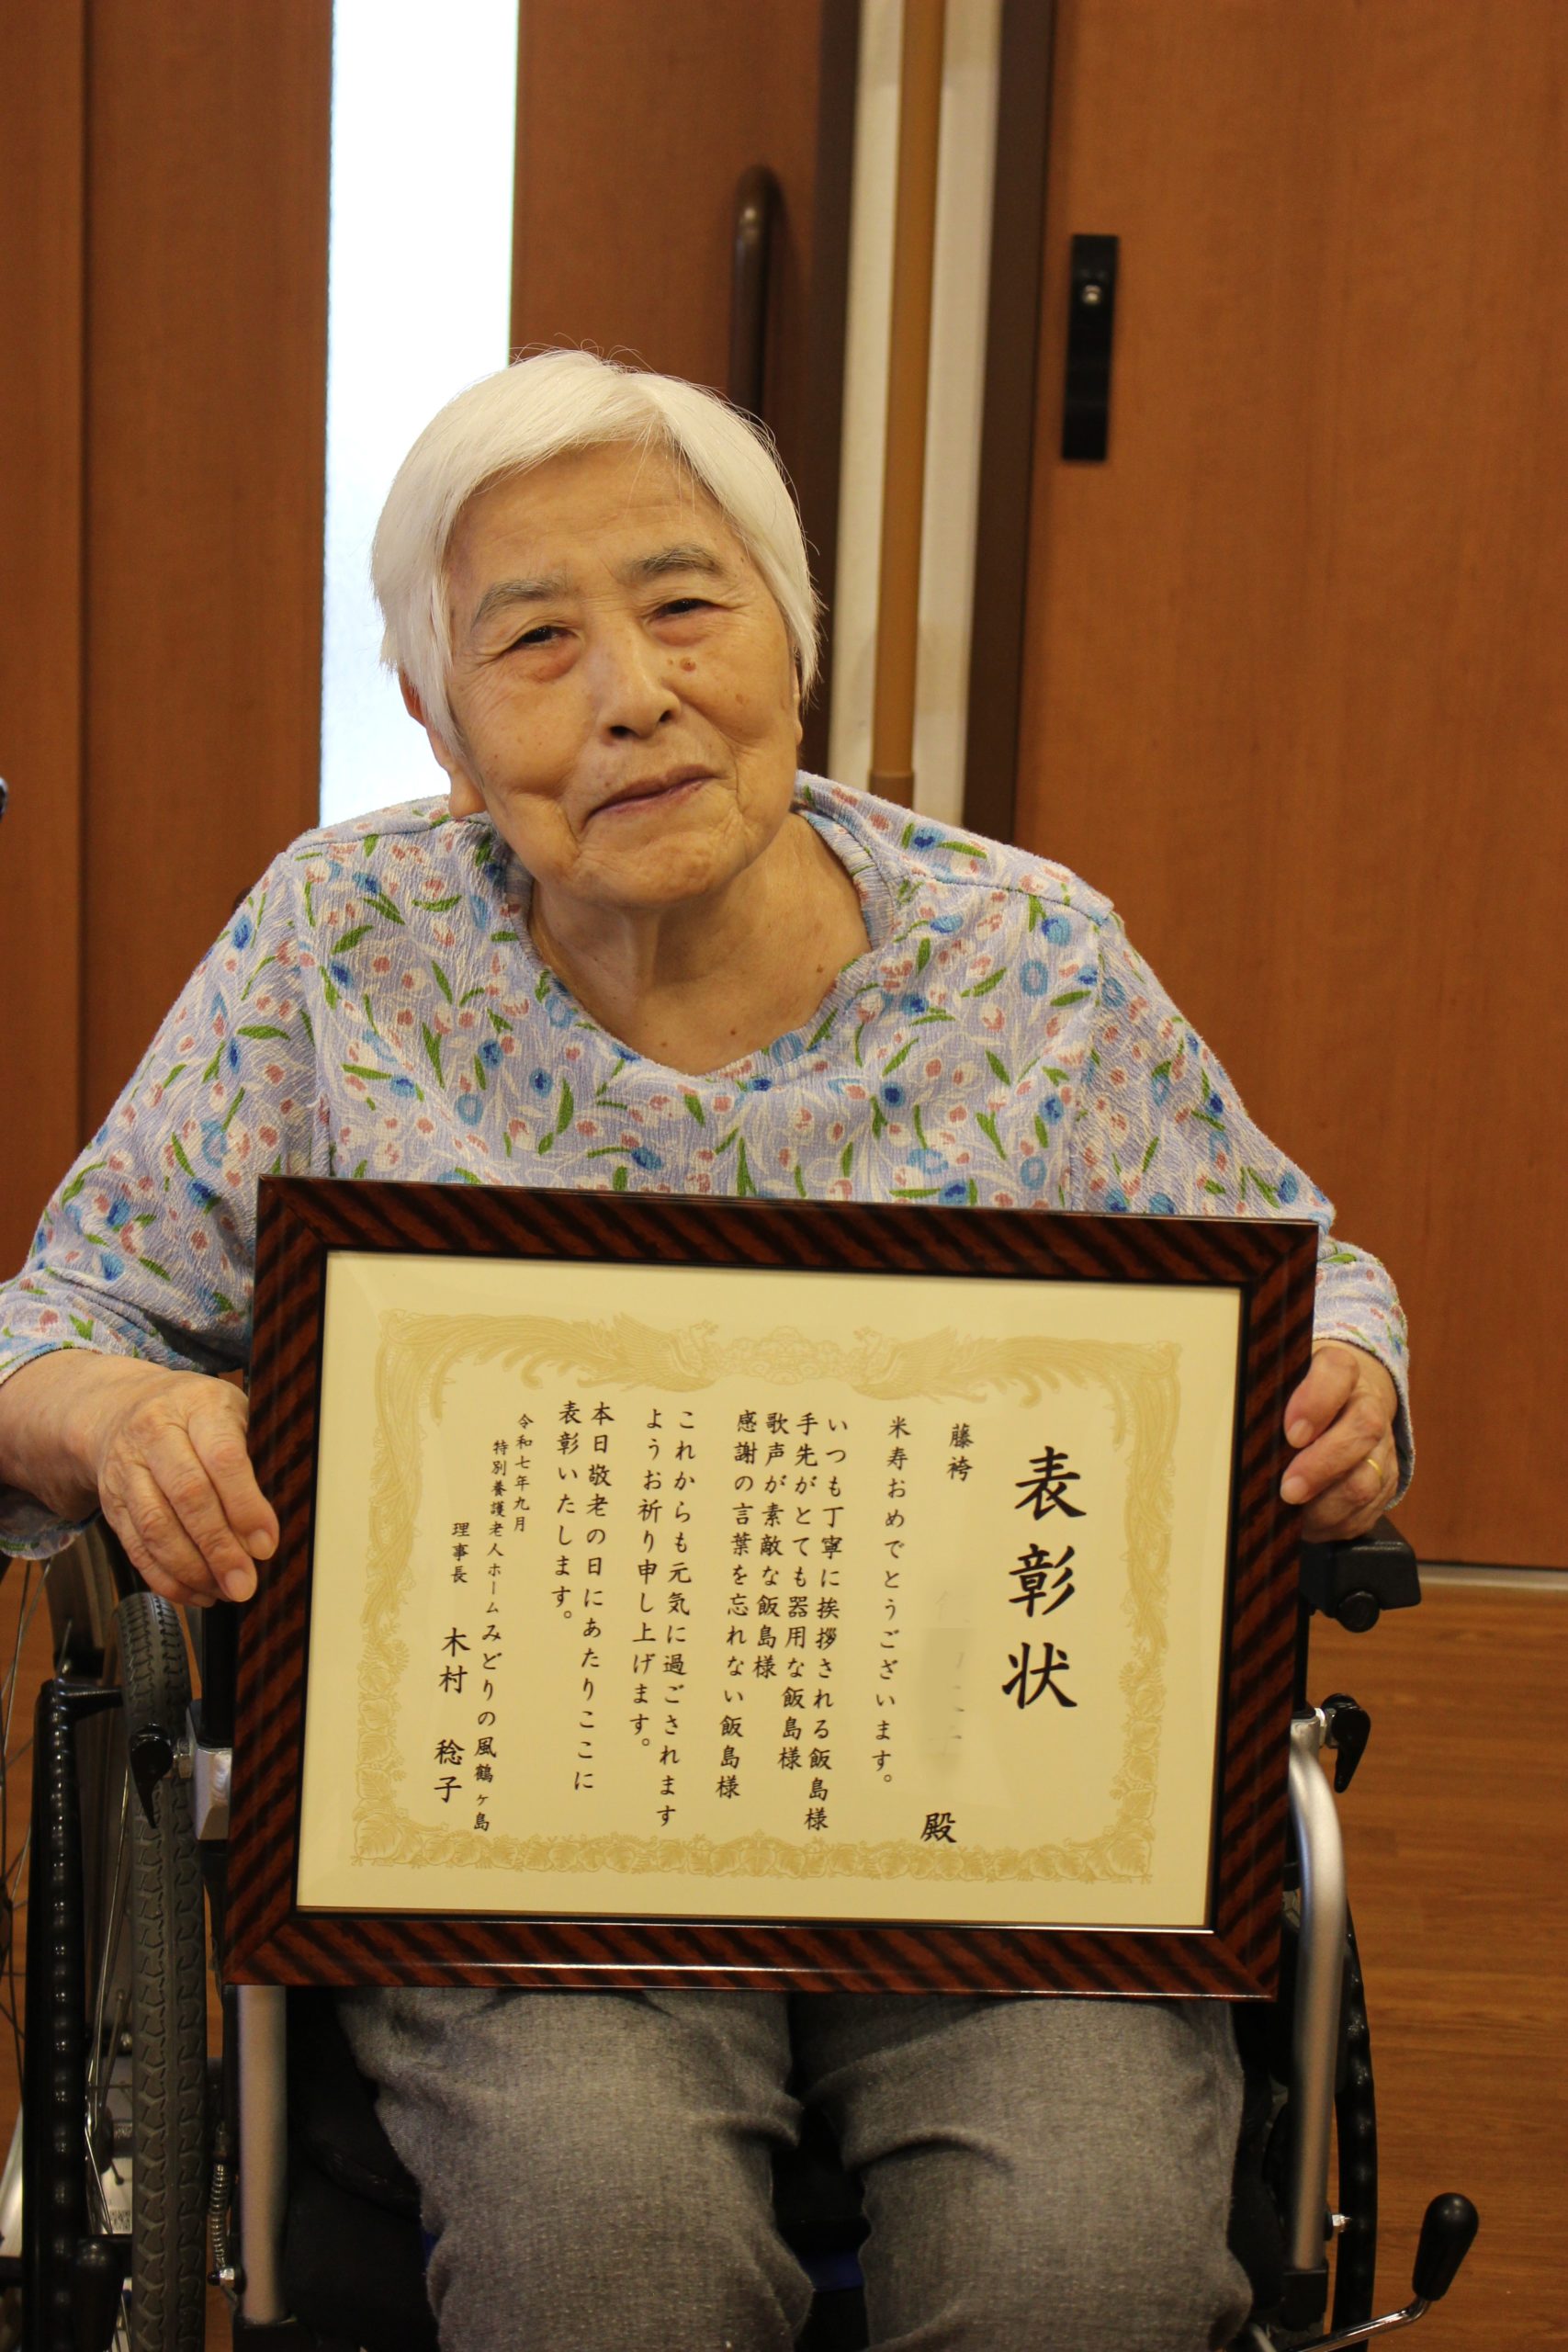 表彰状
藤袴
殿
米寿おめでとうございます。
いつも丁寧に挨拶される飯島様
手先がとても器用な飯島様
歌声が素敵な飯島様
感謝の言葉を忘れない飯島様
これからも元気に過ごされます
ようお祈り申し上げます。
本日敬老の日にあたりここに
表彰いたします。
令和七年九月
特別養護老人ホームみどりの風鶴ヶ島
理事長 木村 稔子